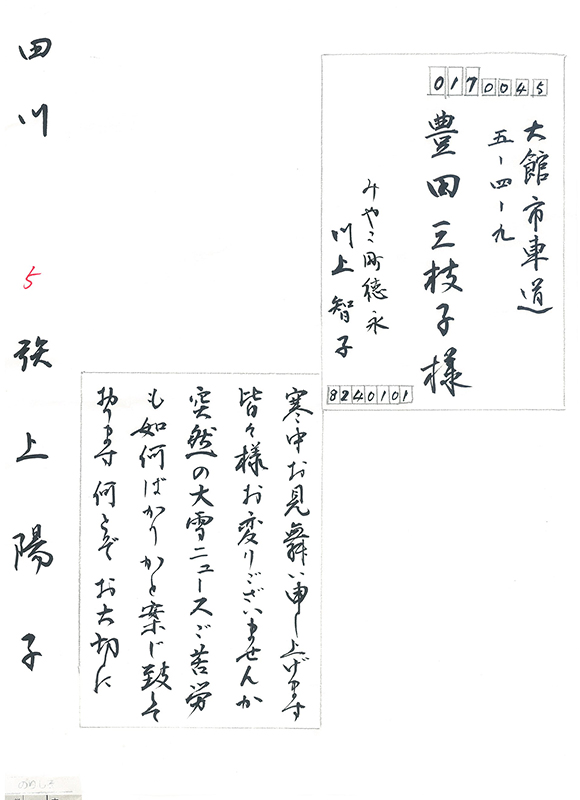 0170045
大館市車道
五ー四ー九
豊田三枝子様
みやこ町徳永
川上智子
8240101
寒中お見舞い申し上げます
皆々様お変りございませんか
突然の大雪ニュースご苦労
も如何ばかりかと案じ致して
おります何とぞお大切に
田川 5 張上陽子